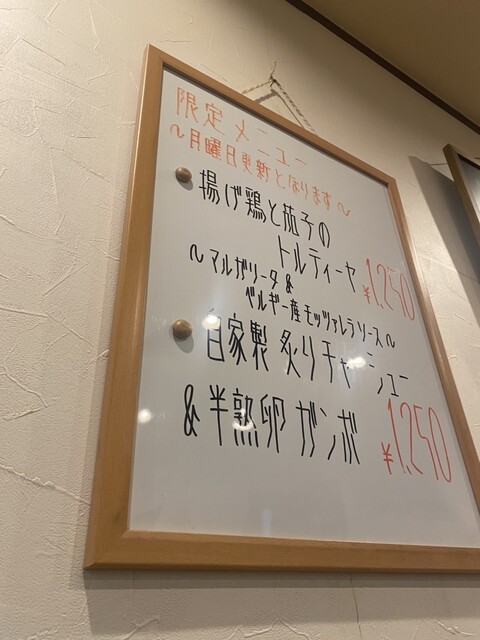 限定メニュー
～月曜日更新となります～
揚げ鶏と茄子の
トルティーヤ ¥1,250
～マルガリータ &
ベルギー産モッツァレラソース～
自家製 炙りチャーシュー
&半熟卵 ガンボ ¥1,250